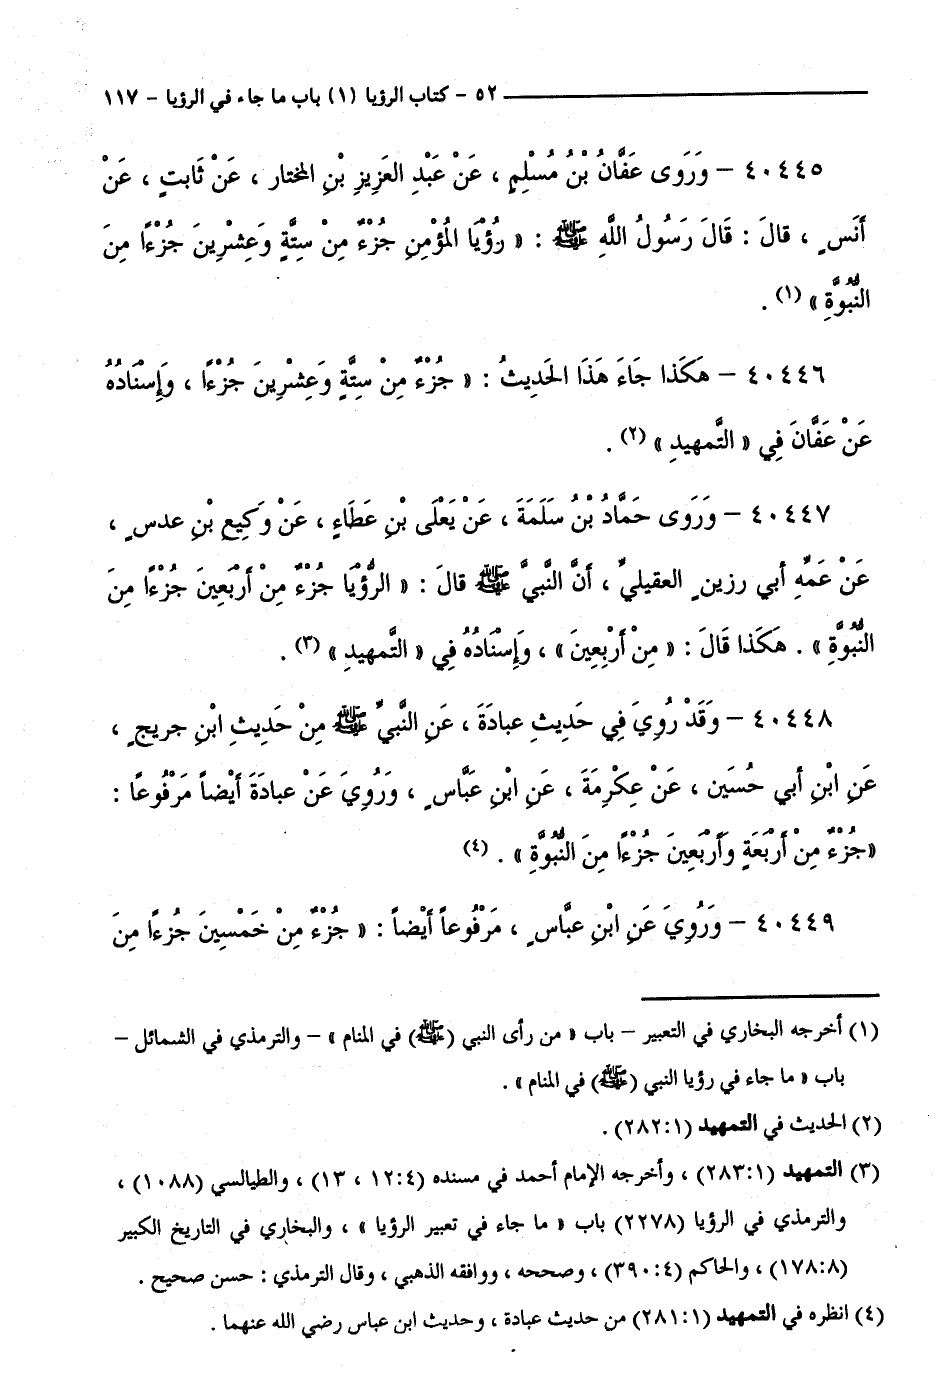 ٥٢ - كتاب الرؤيا (١) باب ما جاء في الرؤيا - ١١٧
٤٠٤٤٥ - وَرَوَى عَفَّانُ بْنُ مُسْلِمٍ ، عَنْ عَبْدِ العَزِيزِ بْنِ المختار ، عَنْ ثَابتٍ ، عَنْ
أَنَسٍ ، قالَ : قَالَ رَسُولُ اللَّهِ ﷺ : « رُؤْيَا المُؤْمِنِ جُزْءٌ مِنْ سِتَّةٍ وَعِشْرِينَ جُزْءًا مِنَ
النُّبُوَّةِ » (١) .
٤٠٤٤٦ - هَكَذا جَاءَ هَذَا الحَدِيثُ : « جُزْءٌ مِنْ سِتَّةٍ وَعِشْرِينَ جُزْءًا ، وَإِسْنَادُهُ
عَنْ عَفَّانَ فِي « التَّمهيدِ » (٢) .
٤٠٤٤٧ - وَرَوَى حَمَّادُ بْنُ سَلَمَةَ ، عَنْ يَعْلَى بْنِ عَطَاءٍ ، عَنْ وَكِيعِ بْنِ عدسٍ ،
عَنْ عَمِّهِ أبي رزينٍ العقيليِّ ، أَنَّ النَّبيَّ ﷺ قالَ : « الرُّؤْيَا جُزْءٌ مِنْ أَرْبَعِينَ جُزْءًا مِنَ
النُّبُوَّةِ » . هَكَذا قَالَ : « مِنْ أَرْبِعِينَ » ، وَإِسْنَادُهُ فِي « التَّمهيدِ » (٣) .
٤٠٤٤٨ - وَقَدْ رُوِيَ فِي حَدِيثِ عبادَةَ ، عَنِ النَّبيِّ ﷺ مِنْ حَدِيثِ ابْنِ جريجٍ ،
عَنِ ابْنِ أبي حُسَين ، عَنْ عِكْرِمَةَ ، عَنِ ابْنِ عَبَّاسٍ ، وَرُوِيَ عَنْ عبادَةَ أَيْضاً مَرْفُوعًا :
«جُزْءٌ مِنْ أَرْبَعَةٍ وَأَرْبَعِينَ جُزْءًا مِنَ النُّبُوَّةِ » . (٤)
٤٠٤٤٩ - وَرُوِيَ عَنِ ابْنِ عَبَّاسٍ ، مَرْفُوعاً أَيْضاً : « جُزْءٌ مِنْ خَمْسِينَ جُزْءًا مِنَ
(١) أخرجه البخاري في التعبير - باب « من رأى النبي (ﷺ) في المنام » - والترمذي في الشمائل -
باب « ما جاء في رؤيا النبي (ﷺ) في المنام » .
(٢) الحديث في التمهيد (٢٨٢:١) .
(٣) التمهيد (٢٨٣:١) ، وأخرجه الإمام أحمد في مسنده (١٢:٤ ، ١٣) ، والطيالسي (١٠٨٨) ،
والترمذي في الرؤيا (٢٢٧٨) باب « ما جاء في تعبير الرؤيا » ، والبخاري في التاريخ الكبير
(١٧٨:٨) ، والحاكم (٣٩٠:٤) ، وصححه ، ووافقه الذهبي ، وقال الترمذي : حسن صحيح .
(٤) انظره في التمهيد (٢٨١:١) من حديث عبادة ، وحديث ابن عباس رضي الله عنهما .